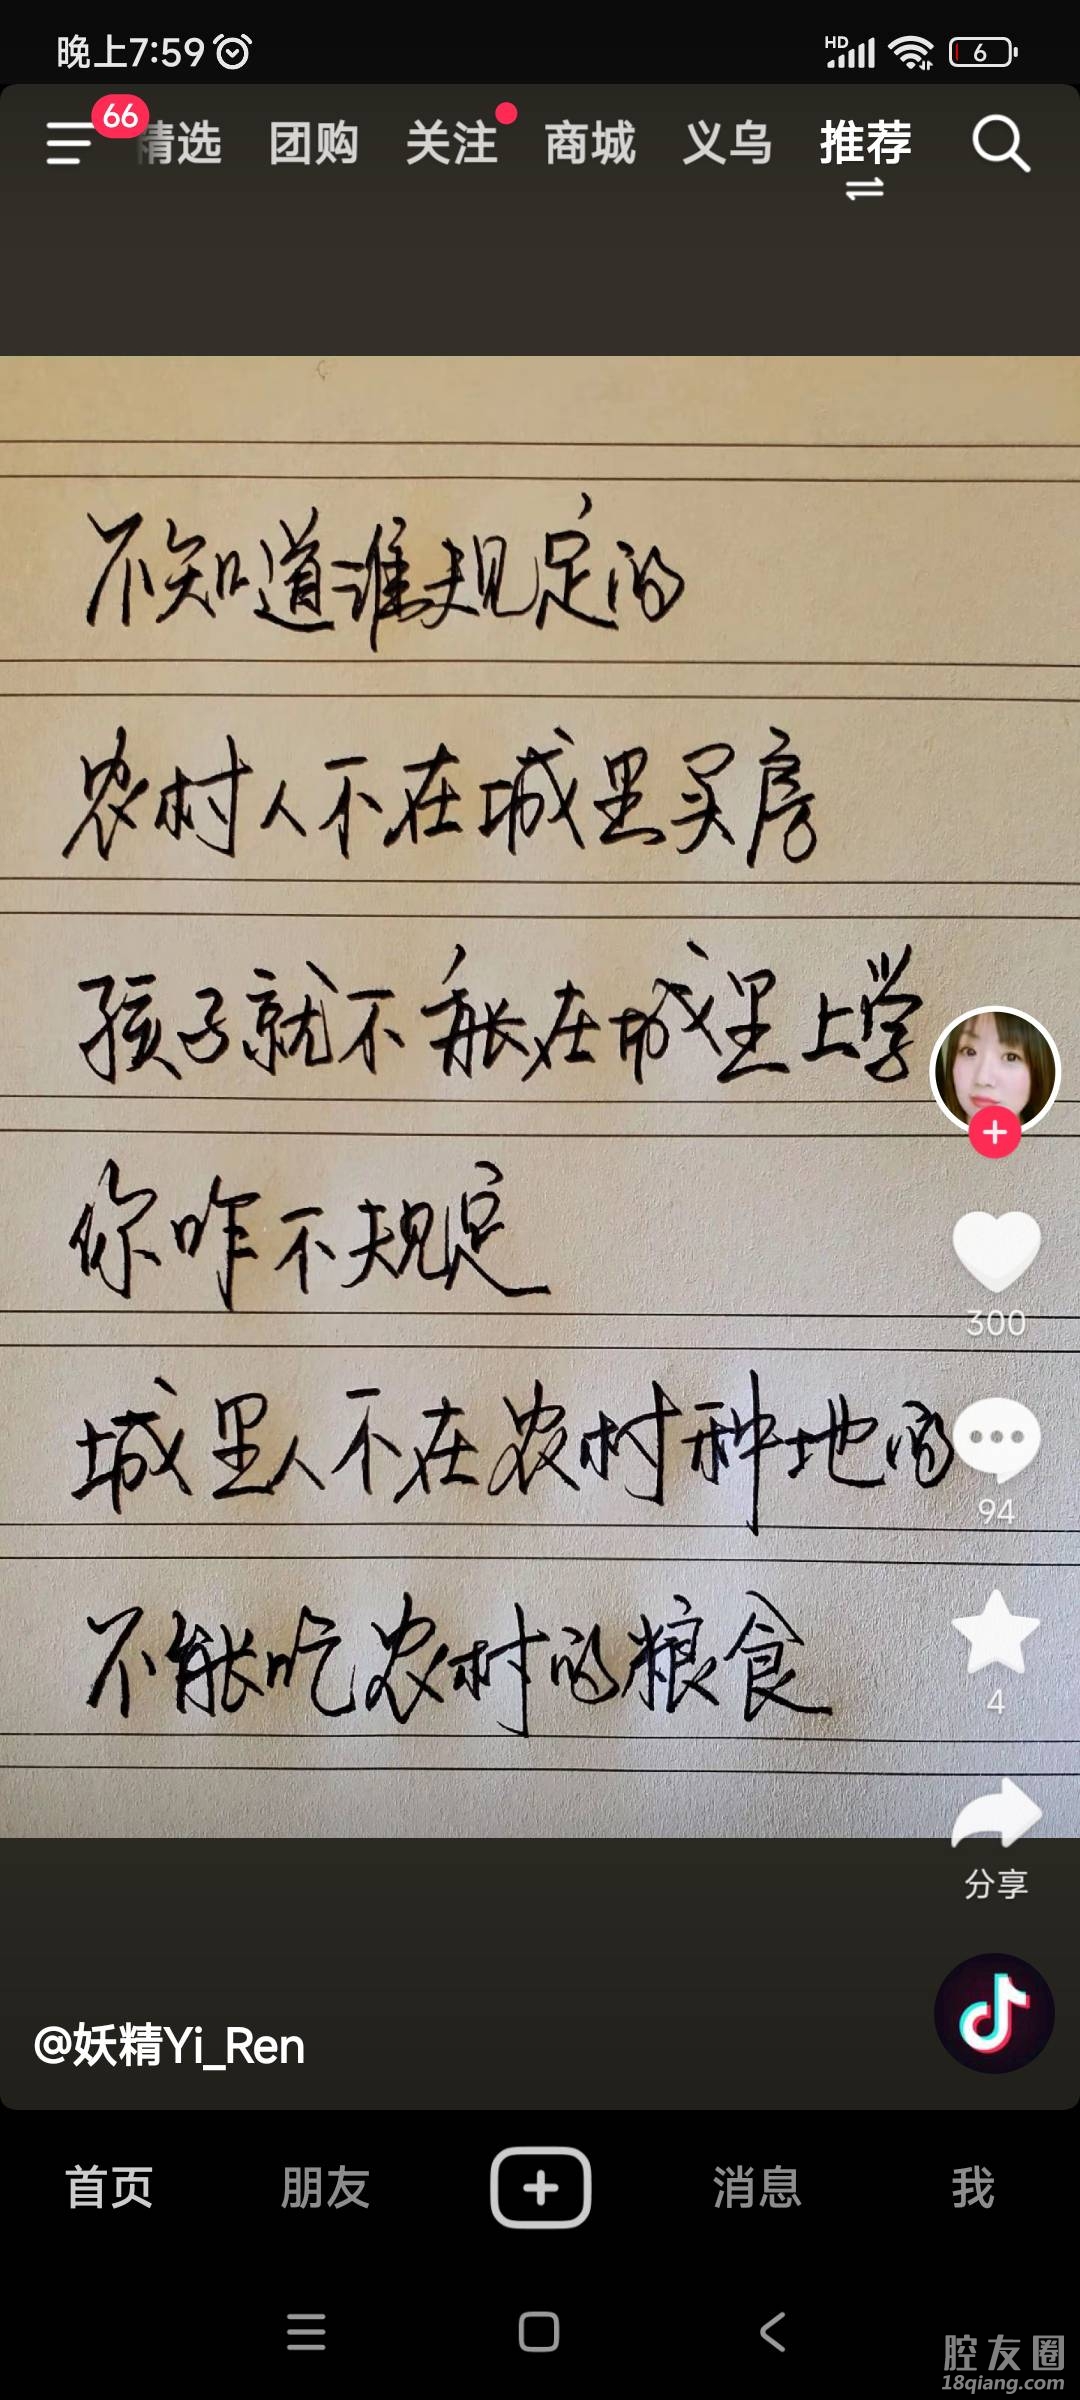 晚上7:59
HD
6
66
精选 团购 关注 商城 义乌 推荐
不知道谁规定的
农村人不在城里买房
孩子就不能在城里上学
你咋不规定
城里人不在农村种地的
不能吃农村的粮食
300
94
4
分享
@妖精Yi_Ren
首页 朋友 消息 我
腔友圈
18qiang.com